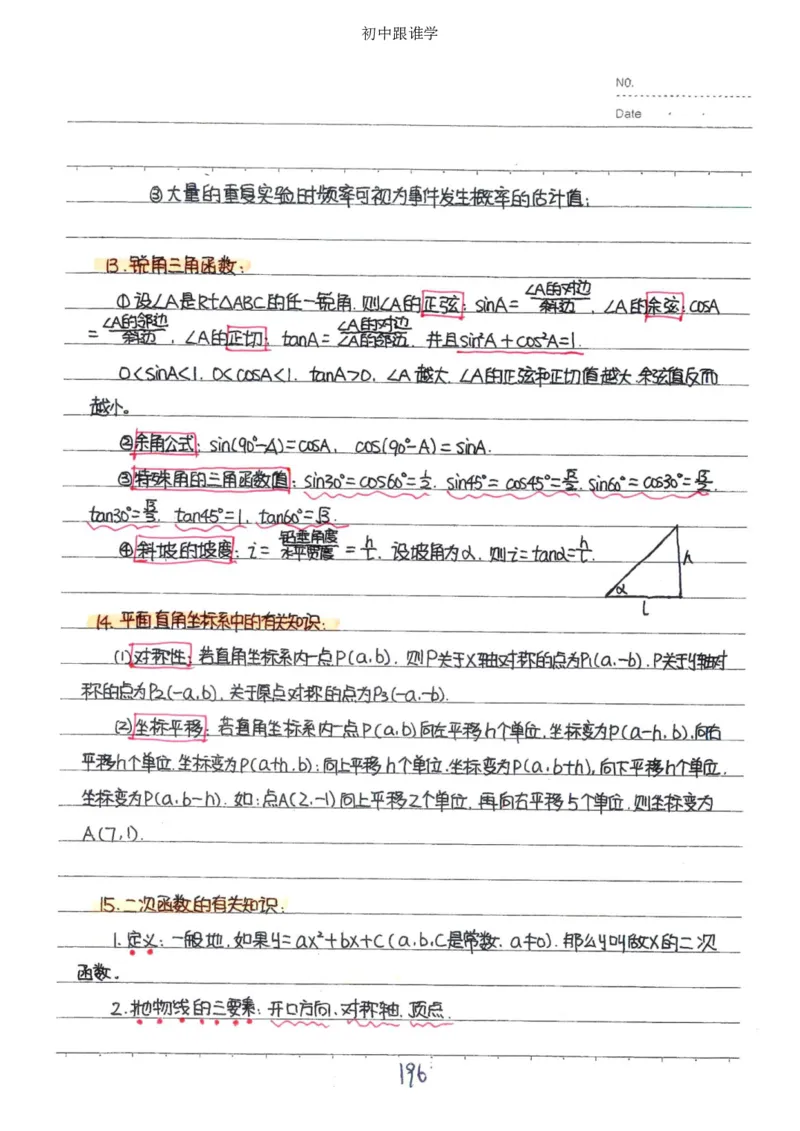 初中跟谁学
NO.
Date
③大量的重复实验时频率可视为事件发生概率的估计值;
13.锐角三角函数:
①设∠A是Rt△ABC的任一锐角,则∠A的正弦:sinA=∠A的对边/斜边,∠A的余弦:cosA
=∠A的邻边/斜边,∠A的正切:tanA=∠A的对边/∠A的邻边.并且sin²A+cos²A=1.
0<sinA<1.0<cosA<1.tanA>0.∠A越大.∠A的正弦和正切值越大.余弦值反而
越小。
②余角公式:sin(90°-A)=cosA,cos(90°-A)=sinA.
③特殊角的三角函数值:sin30°=cos60°=1/2.sin45°=cos45°=√2/2.sin60°=cos30°=√3/2.
tan30°=√3/3.tan45°=1.tan60°=√3.
④斜坡的坡度:i=铅垂角度/水平宽度=h/l.设坡角为α.则i=tanα=h/l.
h
α
l
14.平面直角坐标系中的有关知识:
(1)对称性:若直角坐标系内一点P(a,b).则P关于X轴对称的点为P₁(a,-b).P关于y轴对
称的点为P₂(-a,b).关于原点对称的点为P₃(-a,-b).
(2)坐标平移:若直角坐标系内一点P(a,b)向左平移h个单位.坐标变为P(a-h,b).向右
平移h个单位.坐标变为P(a+h,b);向上平移h个单位.坐标变为P(a,b+h),向下平移h个单位.
坐标变为P(a,b-h).如:点A(2,-1)向上平移2个单位.再向右平移5个单位,则坐标变为
A(7,1).
15.二次函数的有关知识:
1.定义:一般地,如果y=ax²+bx+c(a,b,c是常数.a≠0).那么y叫做x的二次
函数。
2.抛物线的三要素:开口方向、对称轴.顶点.
196